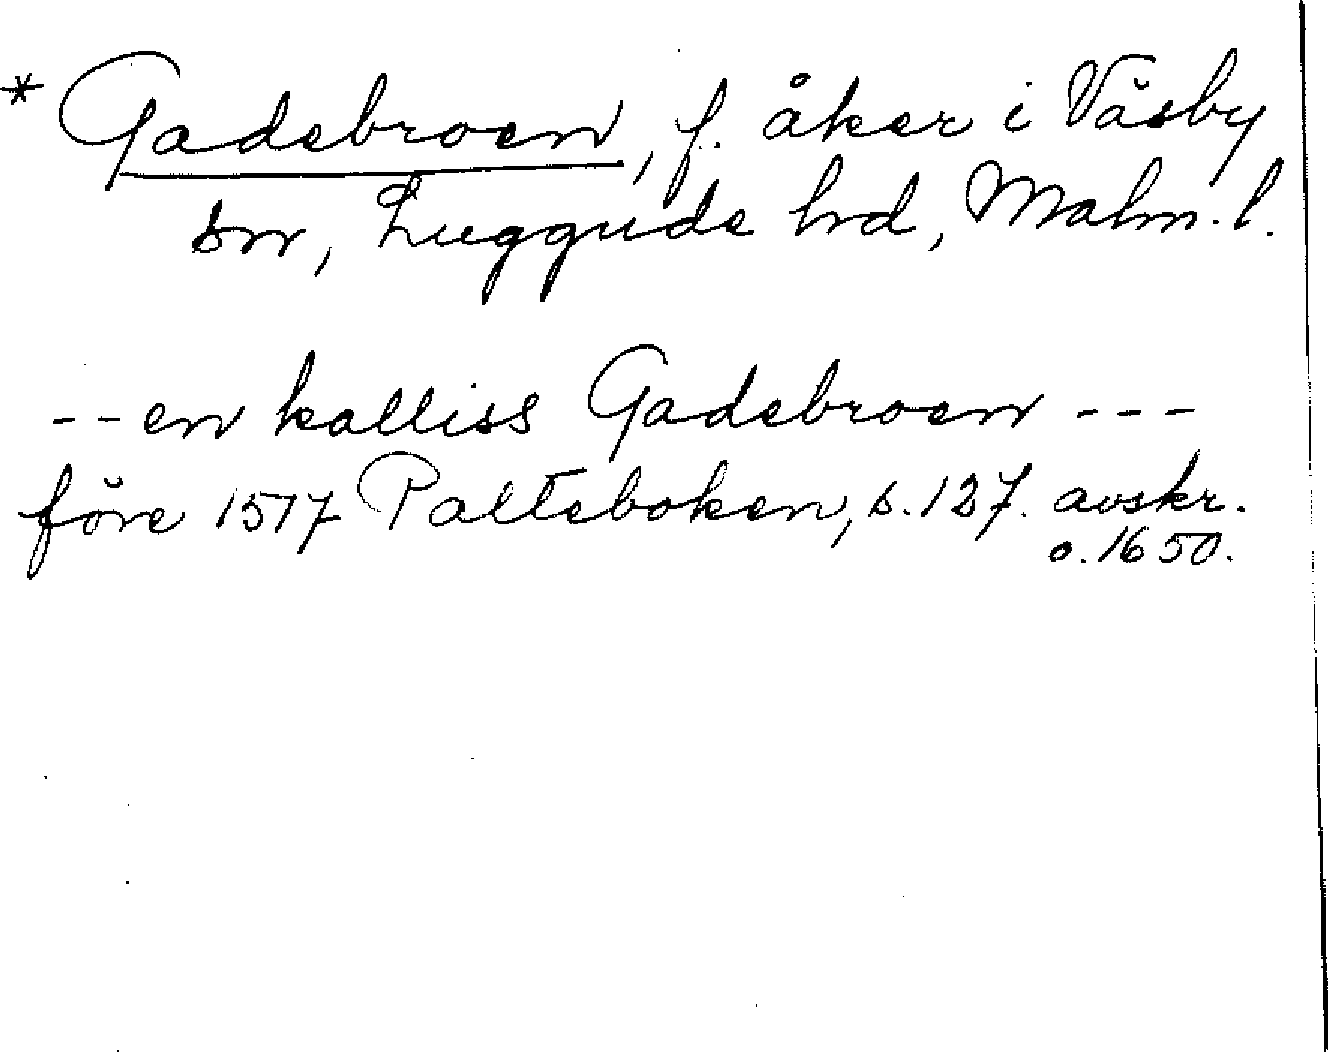 * Gadebroen, f. åker i Väsby
sn, Luggude hd, Malm. l.
-- en kalliss Gadebroen ---
före 1517 Palteboken, s. 127. avskr.
o. 1650.